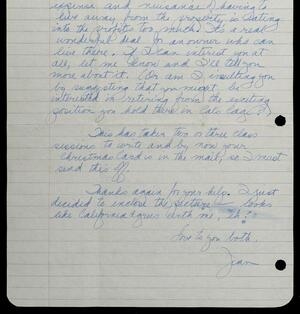 expense and nuisance of having to
live away from the property is eating
into the profits too much) It's a real
wonderful deal for an owner who can
live there. If I can interest you at
all, let me know and I'll tell you
more about it. (Or am I insulting you
by suggesting that you might be
interested in retiring from the exciting
position you hold there in
This has taken two or three class
sessions to write and by now your
Christmas Card is in the mail, so I must
send this off.
Thanks again for your help. I just
decided to enclose the picture looks
like California agrees with me, Eh?
Love to you both,
Jean